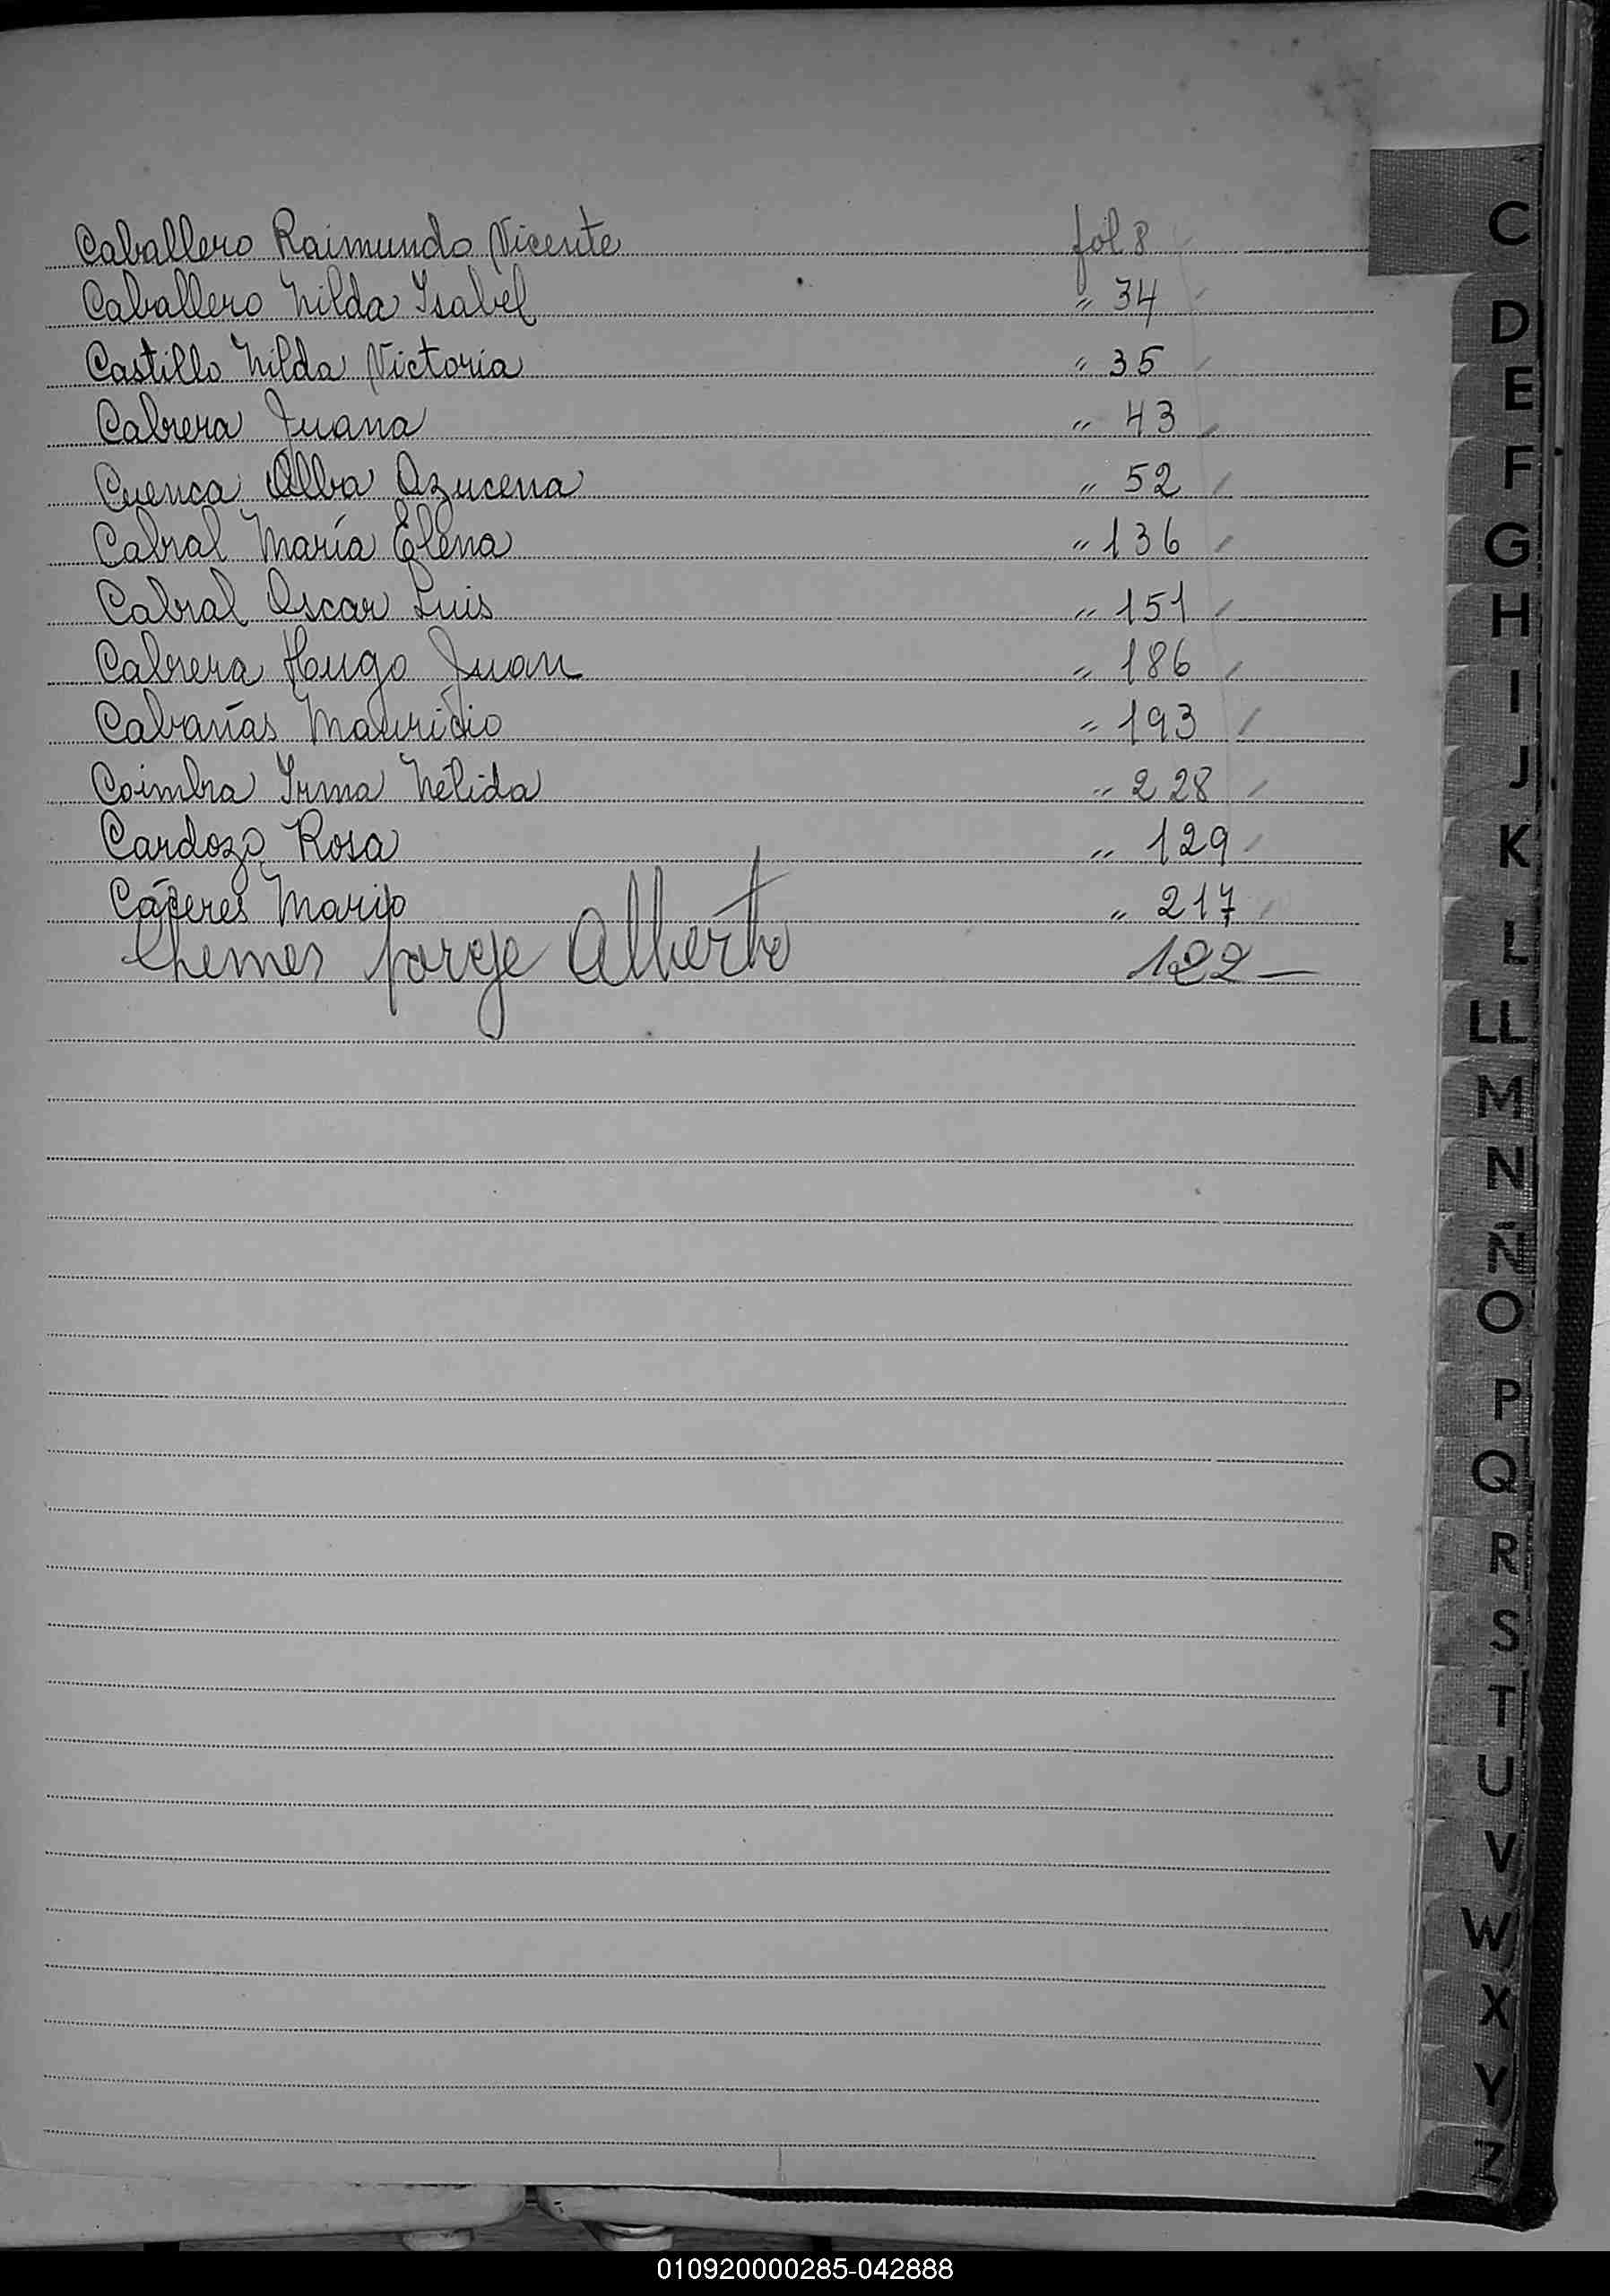 Caballero Raimundo Vicente fol 8
Caballero Nilda Isabel " 34
Castillo Nilda Victoria " 35
Cabrera Juana " 43
Cuenca Alba Azucena " 52
Cabral María Elena " 136
Cabral Oscar Luis " 151
Cabrera Hugo Juan " 186
Cabañas Mauricio " 193
Coimbra Irma Nélida " 228
Cardozo Rosa " 129
Cáceres Mario " 217
Chemes Jorge Alberto 122 —
C
D
E
F
G
H
I
J
K
L
LL
M
N
Ñ
O
P
Q
R
S
T
U
V
W
X
Y
Z
010920000285-042888